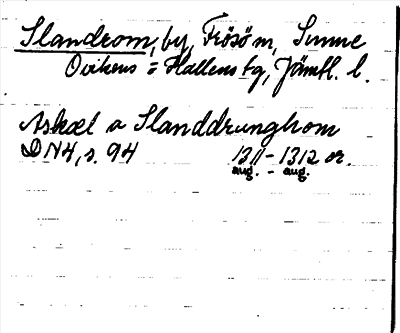 Slandrom, by, Frösö m, Sunne
Ovikens o Hallens tg, Jämtl. l.
Askæl a Slanddrunghom
DN4, s. 94 1311 - 1312 or.
aug. - aug.